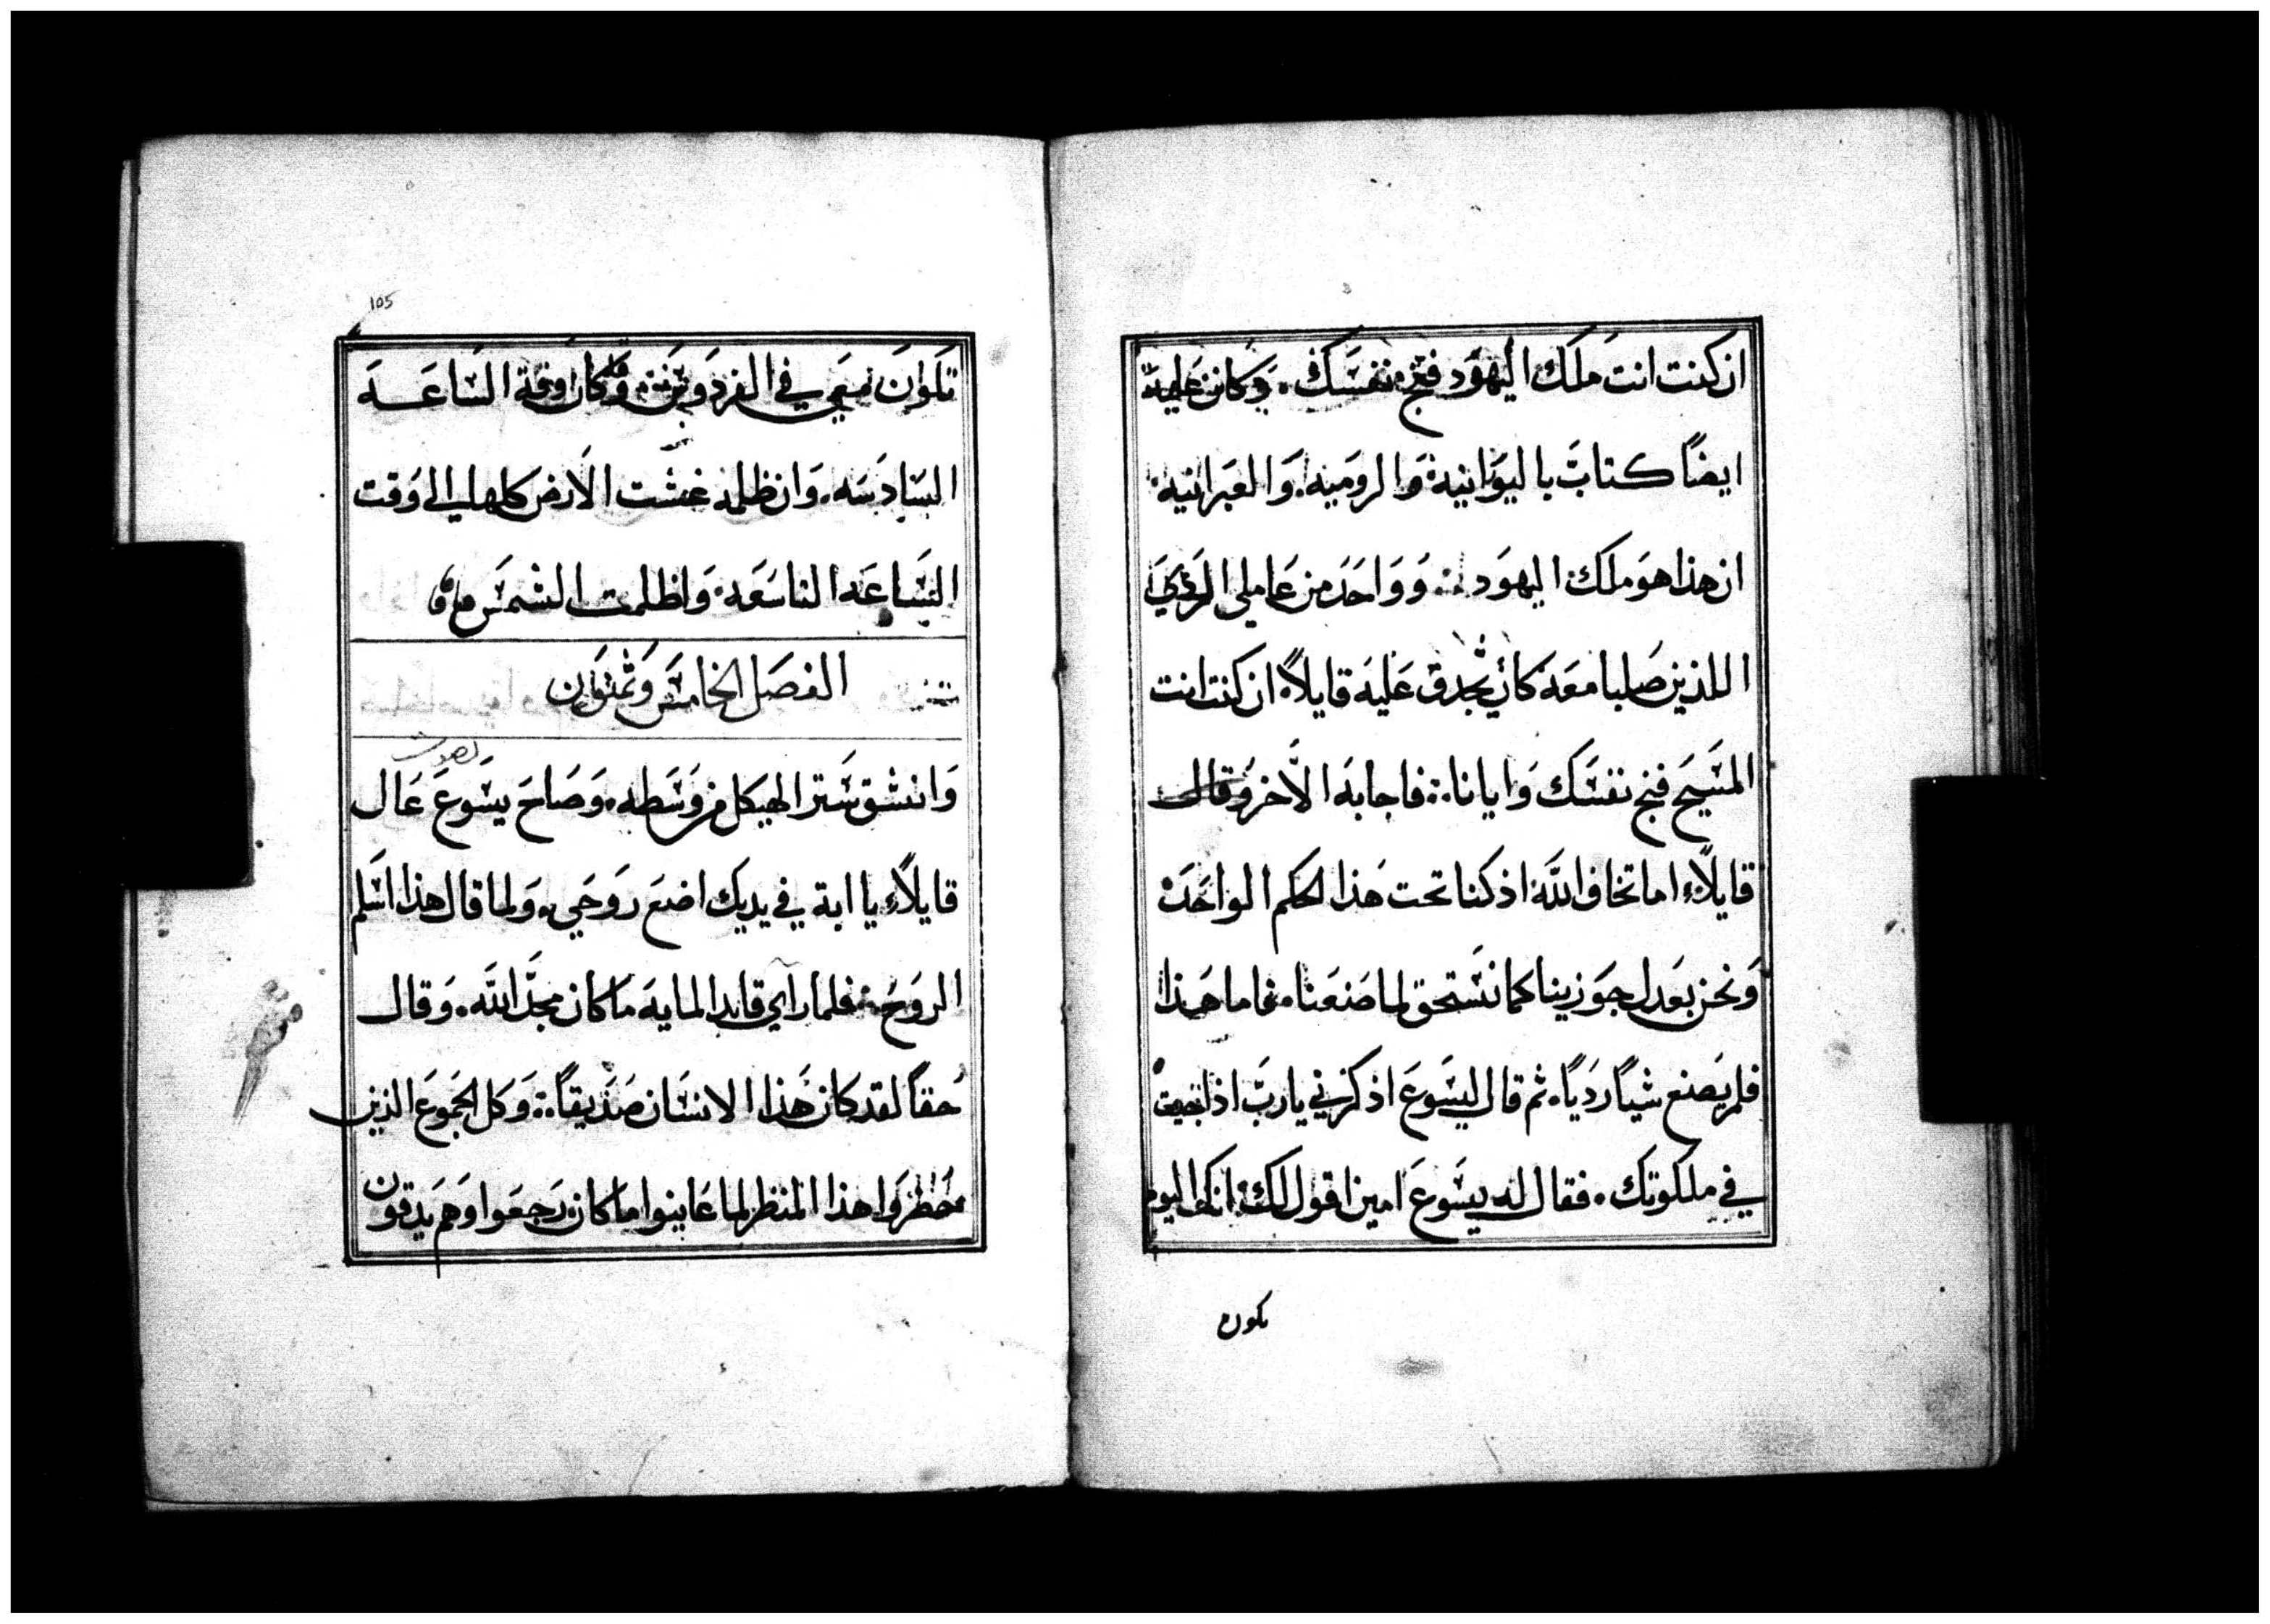 ان كنت انت ملك اليهود فنج نفسك. وكان عليه
ايضاً كتابَ باليوانية والرومية. والعبرانية
ان هذا هو ملك اليهود. وواحد من عاملي الردي
اللذين صلبا معه كان يجدق عليه قايلاً ان كنت انت
المسيح فنج نفسك وايانا. فاجابه الآخر وقال
قايلاً اما تخاف اللّه اذ كنا تحت هذا الحكم الواحد
ونحن بعدل جوزينا كما نستحق لما صنعنا. فاما هذا
فلم يصنع شياً ردياً. ثم قال ليسوع اذكرني يا ربّ اذا جيت
في ملكوتك. فقال له يسوع امين اقول لك انك اليوم
تكون
105
تكون معي في الفردوس. وكان وقة الساعه
السادسه. وان ظلمه غشت الارض كلها الي وقت
الساعه التاسعه. واظلمت الشمس
الفصل الخامس وثمنون
وانشق ستر الهيكل من وسطه. وصاح يسوع عال
بصوت
قايلاً يا ابة في يديك اضع روحي. ولما قال هذا اسلم
الروح. فلما راي قايد المايه ما كان مجدّ اللّه. وقال
حقاً لقد كان هذا الانسان صديقاً. وكل الجموع الذين
حظروا هذا المنظر لما عاينوا ما كان رجعوا وهم يدقون